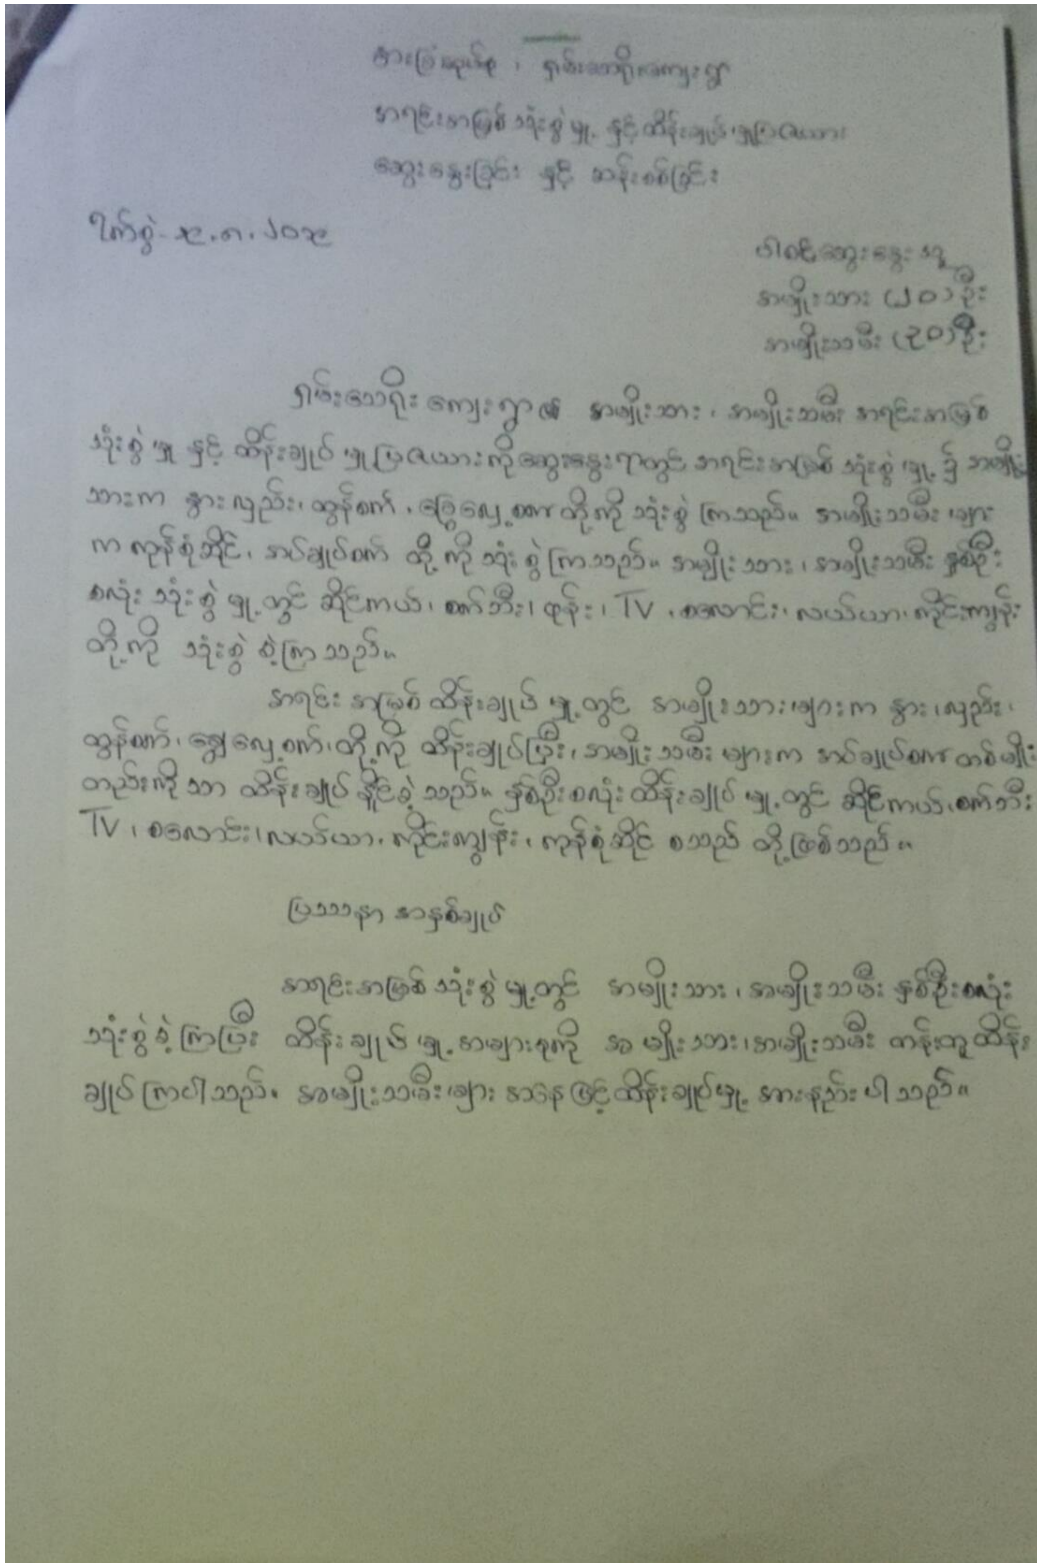 ရှမ်းသေရိုးကျေးရွာ
အရင်းအမြစ် သုံးစွဲမှု့ နှင့် ထိန်းချုပ်မှုပြဇယား
ဆွေးနွေးခြင်း နှင့် ဆန်းစစ်ခြင်း
ရက်စွဲ -
ပါဝင်ဆွေးနွေးသူ
အမျိုးသား (၂၀) ဦး
အမျိုးသမီး (၃၀) ဦး
ရှမ်းသေရိုး ကျေးရွာ၏ အမျိုးသား ၊ အမျိုးသမီး အရင်းအမြစ်
သုံးစွဲမှု နှင့် ထိန်းချုပ်မှုပြဇယားကိုဆွေးနွေးရာတွင် အရင်းအမြစ် သုံးစွဲမှု့ ၌ အမျိုး
သားက နွားလှည်း၊ ထွန်စက် ၊ ခြွေလှေ့စက် တို့ကို သုံးစွဲ ကြသည်။ အမျိုးသမီး များ
က ကုန်စုံဆိုင် ၊ အပ်ချုပ်စက် တို့ ကို သုံး စွဲ ကြသည်။ အမျိုးသား ၊ အမျိုးသမီး နှစ်ဦး
စလုံး သုံးစွဲ မှု့တွင် ဆိုင်ကယ် ၊ စက်ဘီး ၊ ဖုန်း ၊ TV ၊ စလောင်း ၊ လယ်ယာ ၊ ကိုင်းကျွန်း
တို့ကို သုံးစွဲ ခဲ့ကြ သည်။
အရင်း အမြစ် ထိန်းချုပ် မှု့တွင် အမျိုးသားများက နွား ၊ လှည်း ၊
ထွန်စက် ၊ ခြွေလှေ့စက် ၊ တို့ကို ထိန်းချုပ်ပြီး ၊ အမျိုးသမီး များက အပ်ချုပ်စက် တစ်မျိုး
တည်းကို သာ ထိန်းချုပ် နိုင်ခဲ့ သည်။ နှစ်ဦးစလုံး ထိန်းချုပ် မှု့တွင် ဆိုင်ကယ် ၊ စက်ဘီး
TV ၊ စလောင်း ၊ လယ်ယာ ၊ ကိုင်းကျွန်း ၊ ကုန်စုံဆိုင် စသည် တို့ဖြစ်သည်။
ပြဿနာ အနှစ်ချုပ်
အရင်းအမြစ် သုံးစွဲ မှု့တွင် အမျိုးသား ၊ အမျိုးသမီး နှစ်ဦးစလုံး
သုံးစွဲခဲ့ကြပြီး ထိန်းချုပ် မှု့ အများစုကို အမျိုးသား ၊ အမျိုးသမီး တန်းတူ ထိန်း
ချုပ် ကြပါသည်။ အမျိုးသမီးများ အနေဖြင့် ထိန်းချုပ်မှု့ အားနည်း ပါသည်။